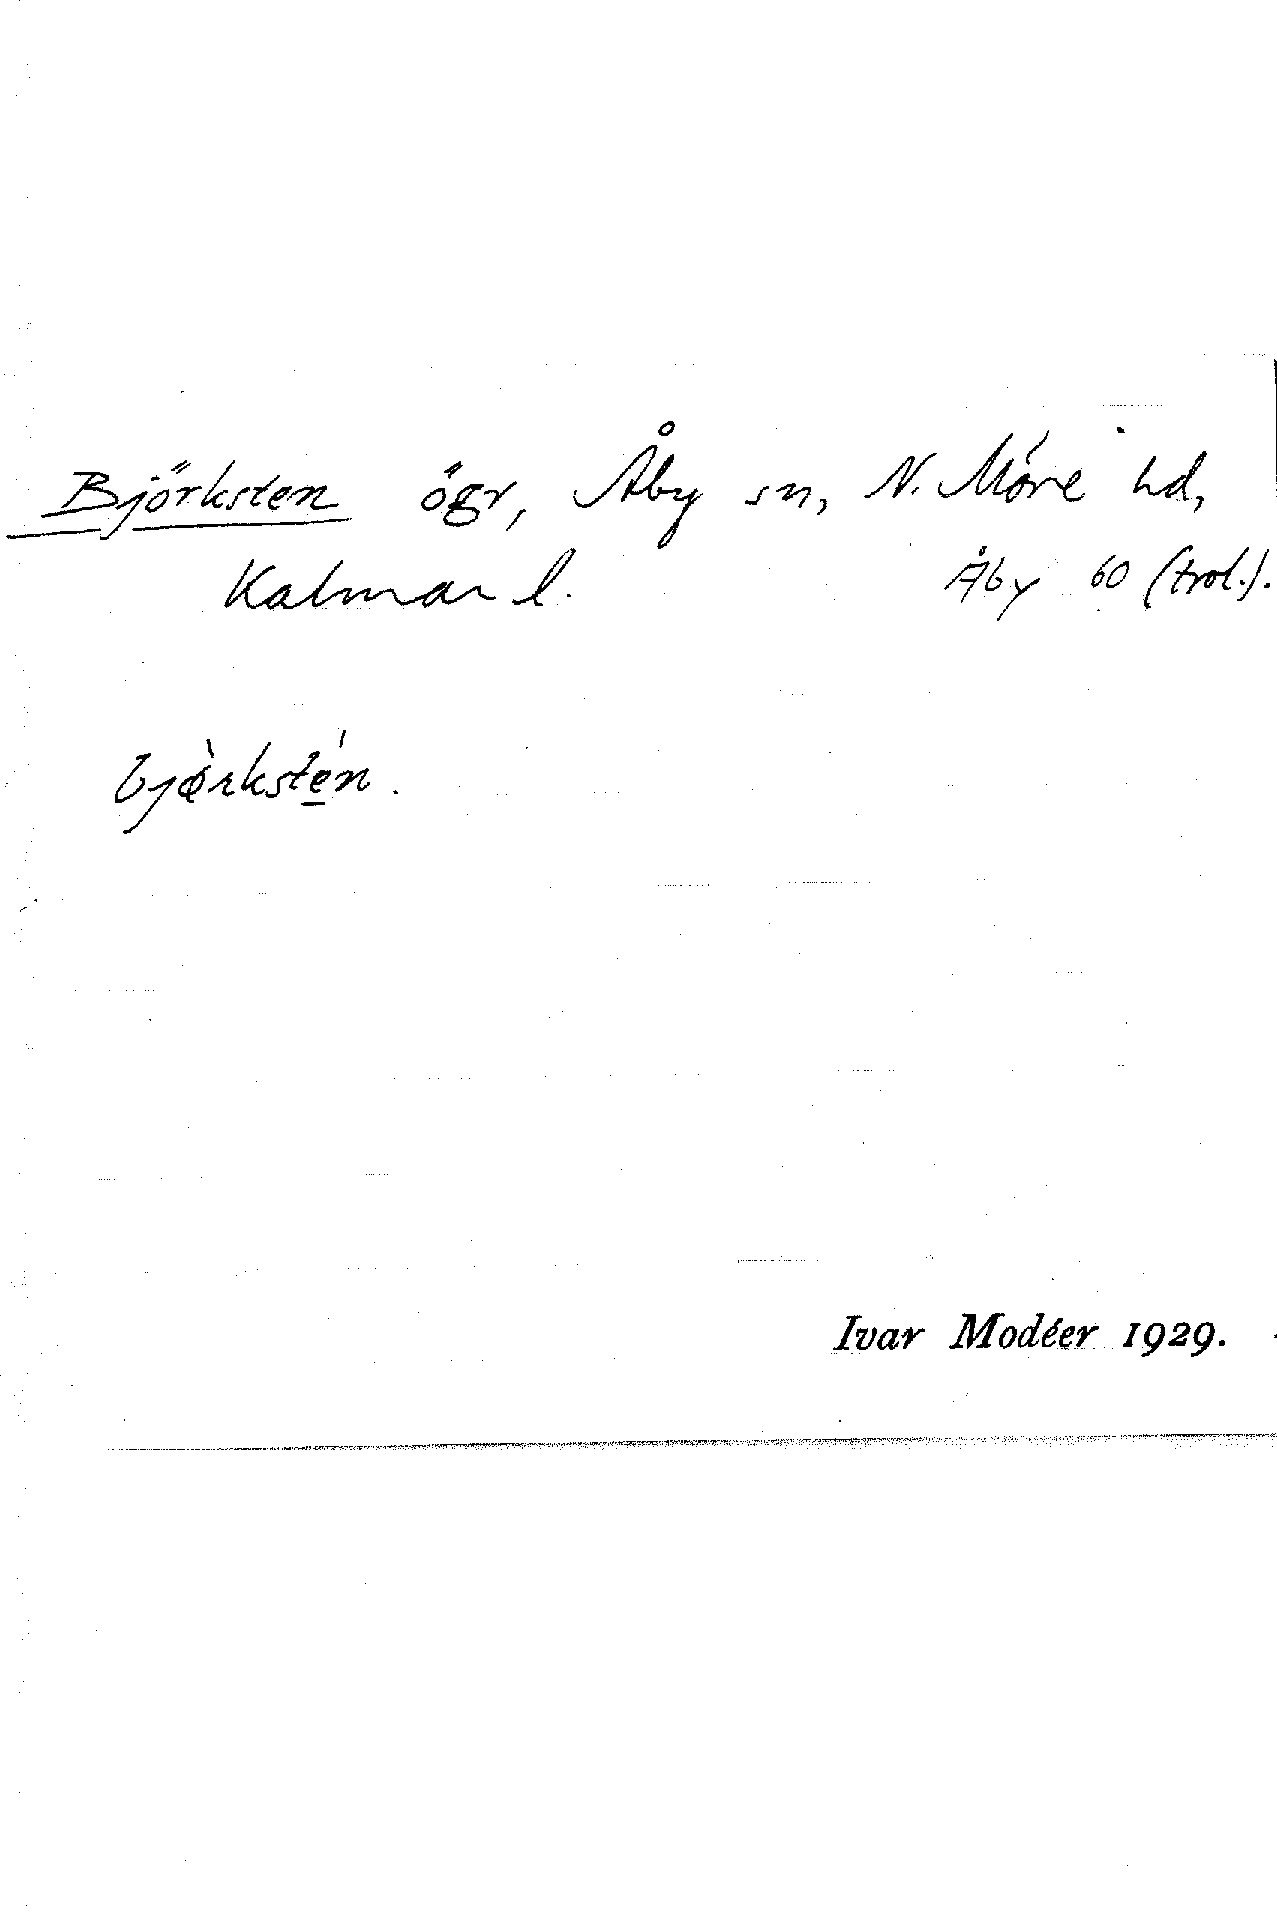 Björksten ögr, Åby sn, N. Möre hd,
Kalmar l. Åby 60 (trol.).
bjø̀rksté̱n.
Ivar Modéer 1929.